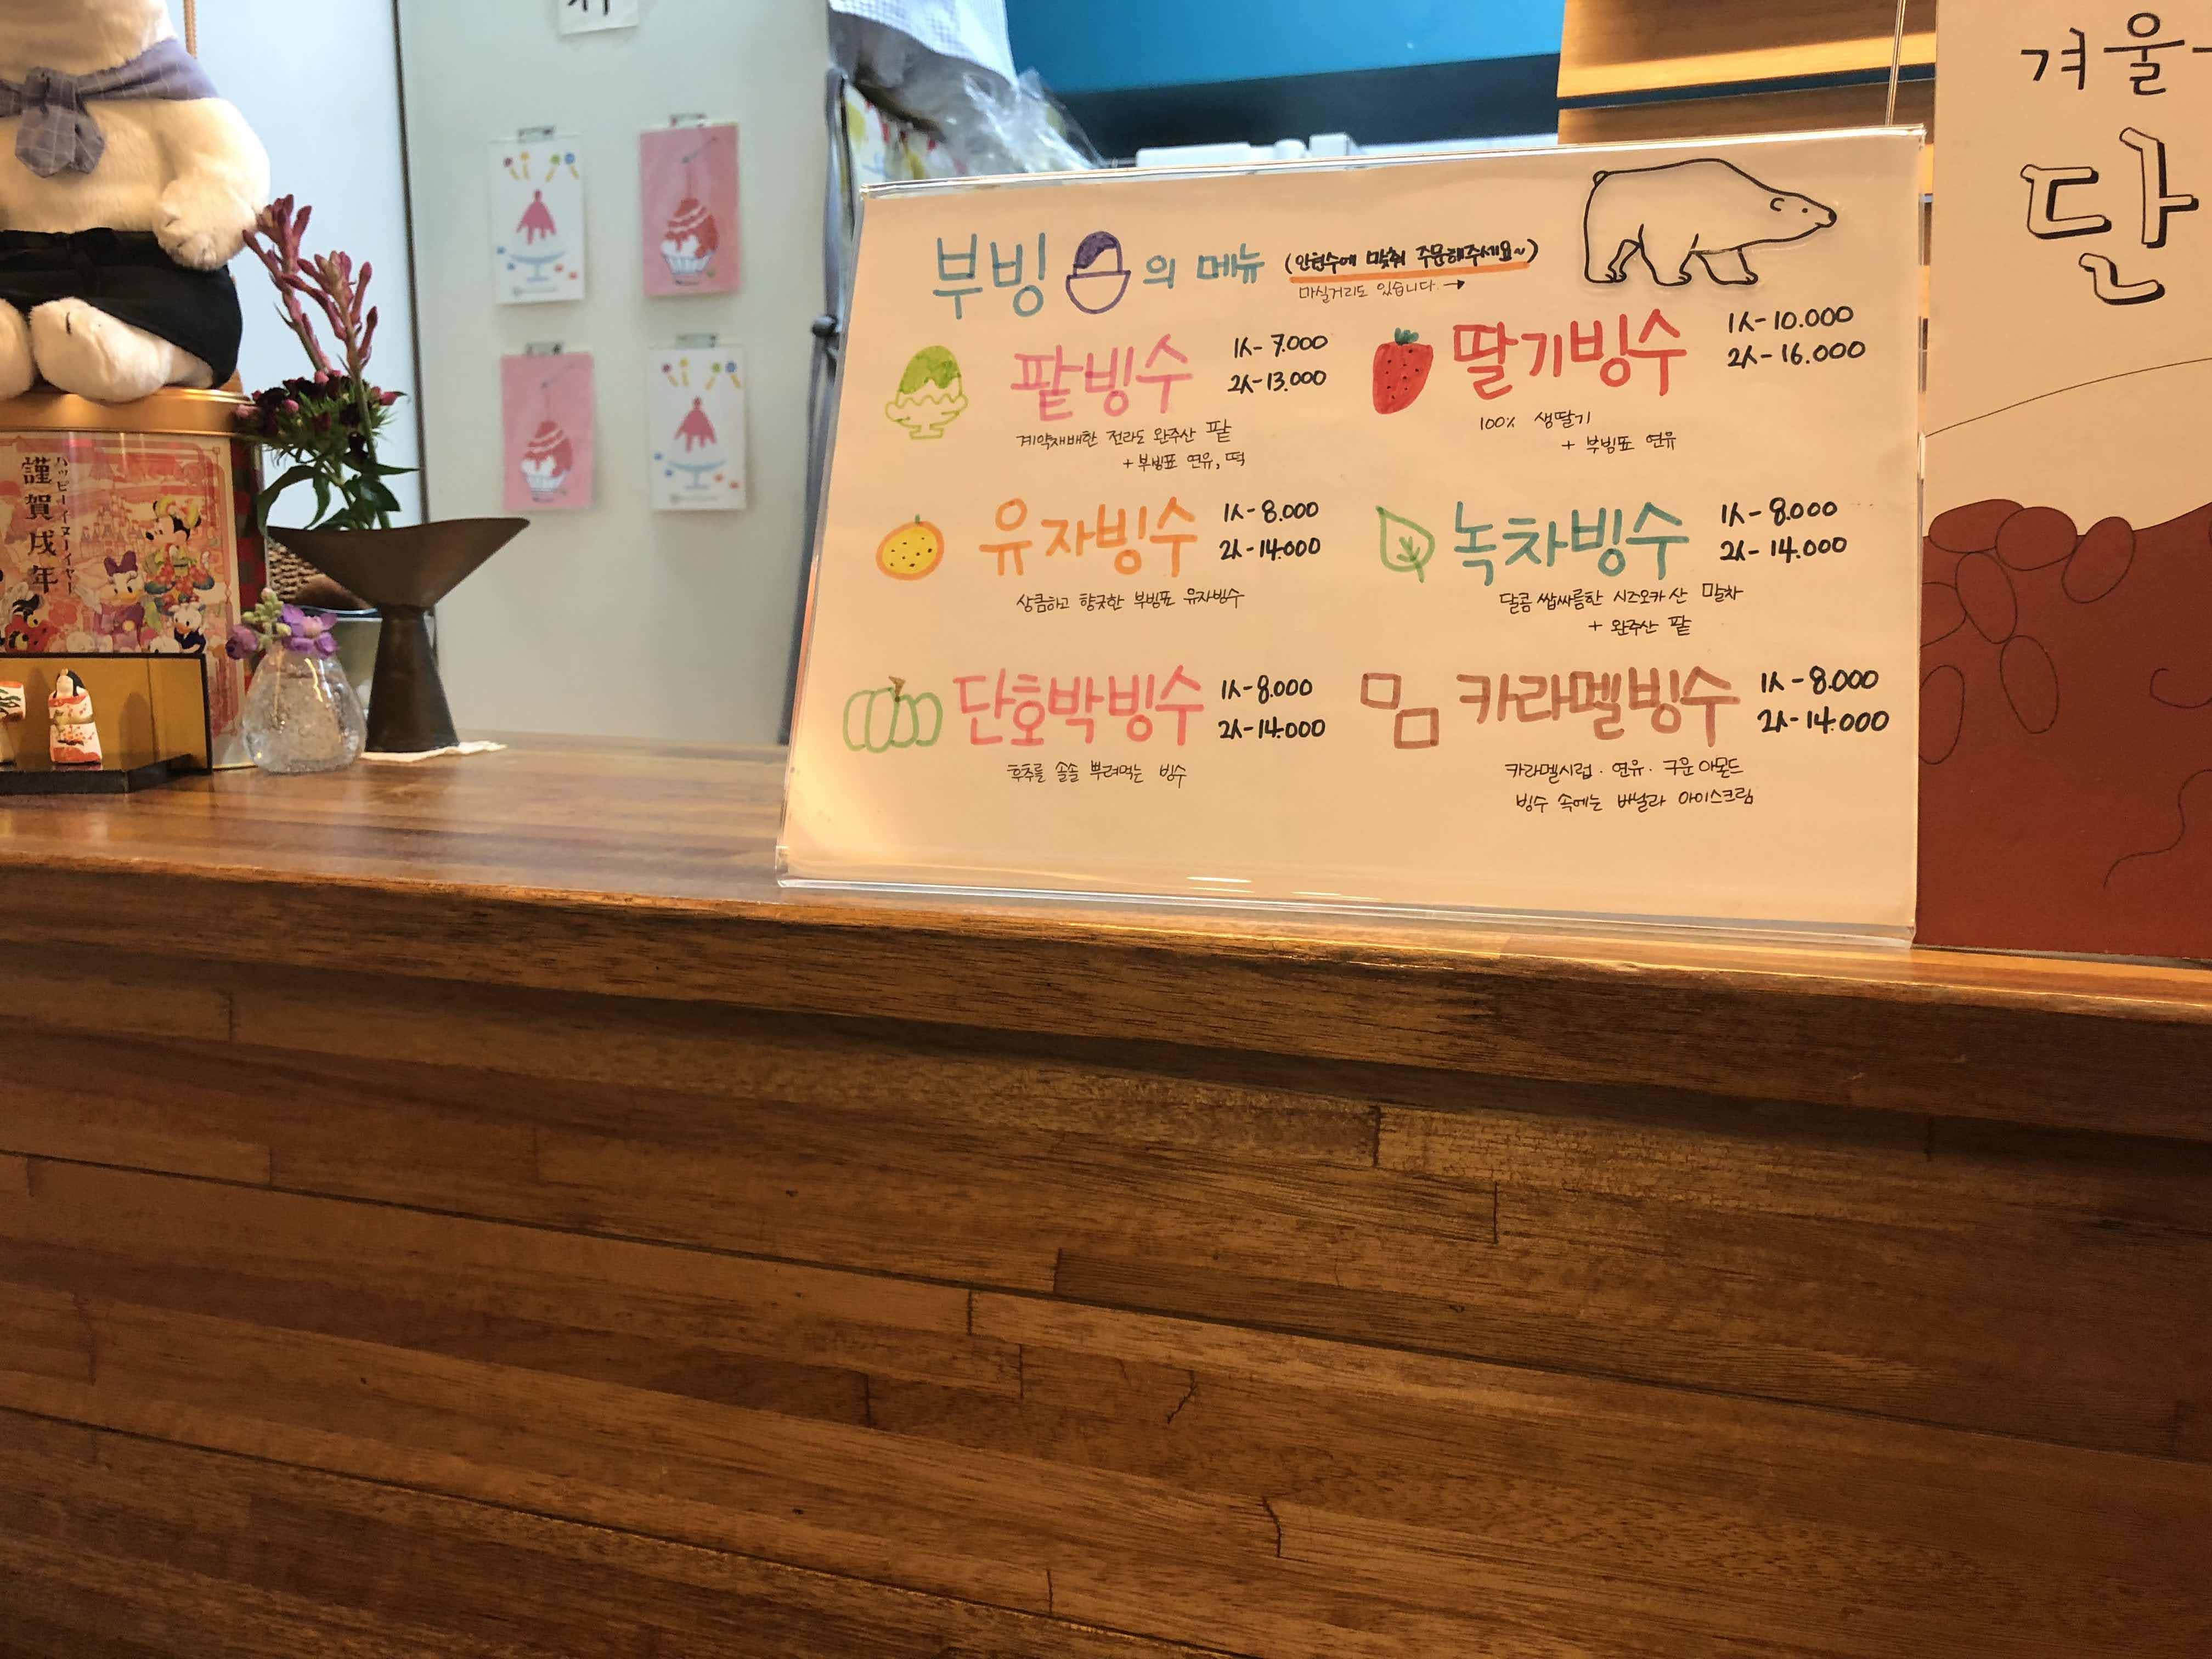 부빙의 메뉴 (인원수에 맞춰 주문해주세요~)
마실거리도 있습니다 →
팥빙수
1人-7.000
2人-13.000
계약재배한 전라도 완주산 팥
+부빙표 연유, 떡
딸기빙수
1人-10.000
2人-16.000
100% 생딸기
+ 부빙표 연유
유자빙수
1人-8.000
2人-14.000
상큼하고 향긋한 부빙표 유자빙수
녹차빙수
1人-8.000
2人-14.000
달콤 쌉싸름한 시즈오카 산 말차
+ 완주산 팥
단호박빙수
1人-8.000
2人-14.000
후추를 솔솔 뿌려먹는 빙수
카라멜빙수
1人-8.000
2人-14.000
카라멜시럽 · 연유 · 구운 아몬드
빙수 속에는 바닐라 아이스크림
겨울
단
謹賀戌年
ハッピーイヌーイヤー